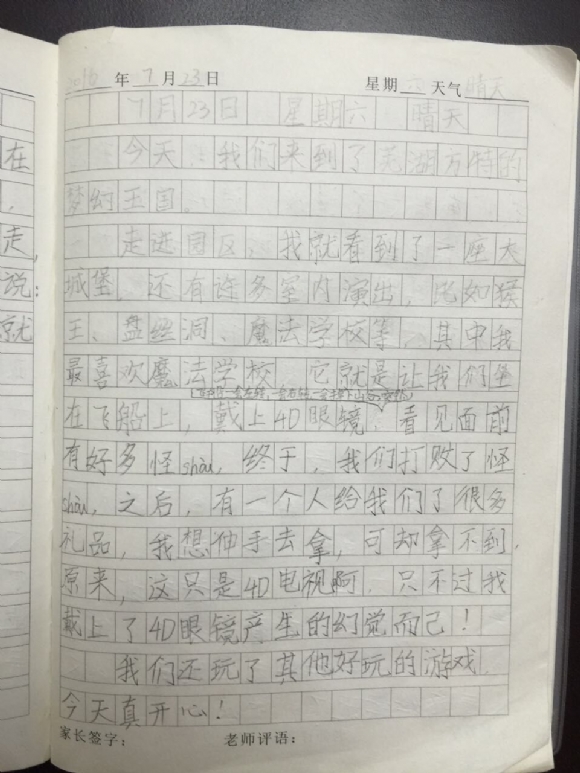 2016年7月23日 星期六 天气晴天
7月23日 星期六 晴天
今天,我们来到了芜湖方特的
梦幻王国。
走进园区,我就看到了一座大
城堡,还有许多室内演出,比如猴
王、盘丝洞、魔法学校等,其中我
最喜欢魔法学校,它就是让我们坐
在飞船上,戴上4D眼镜,看见面前
有好多怪shòu,终于,我们打败了怪
shòu,之后,有一个人给我们了很多
礼品,我想伸手去拿,可却拿不到,
原来,这只是4D电视啊,只不过我
戴上了4D眼镜产生的幻觉而己!
我们还玩了其他好玩的游戏.
今天真开心!
家长签字: 老师评语:
在
,
走,
说:
就